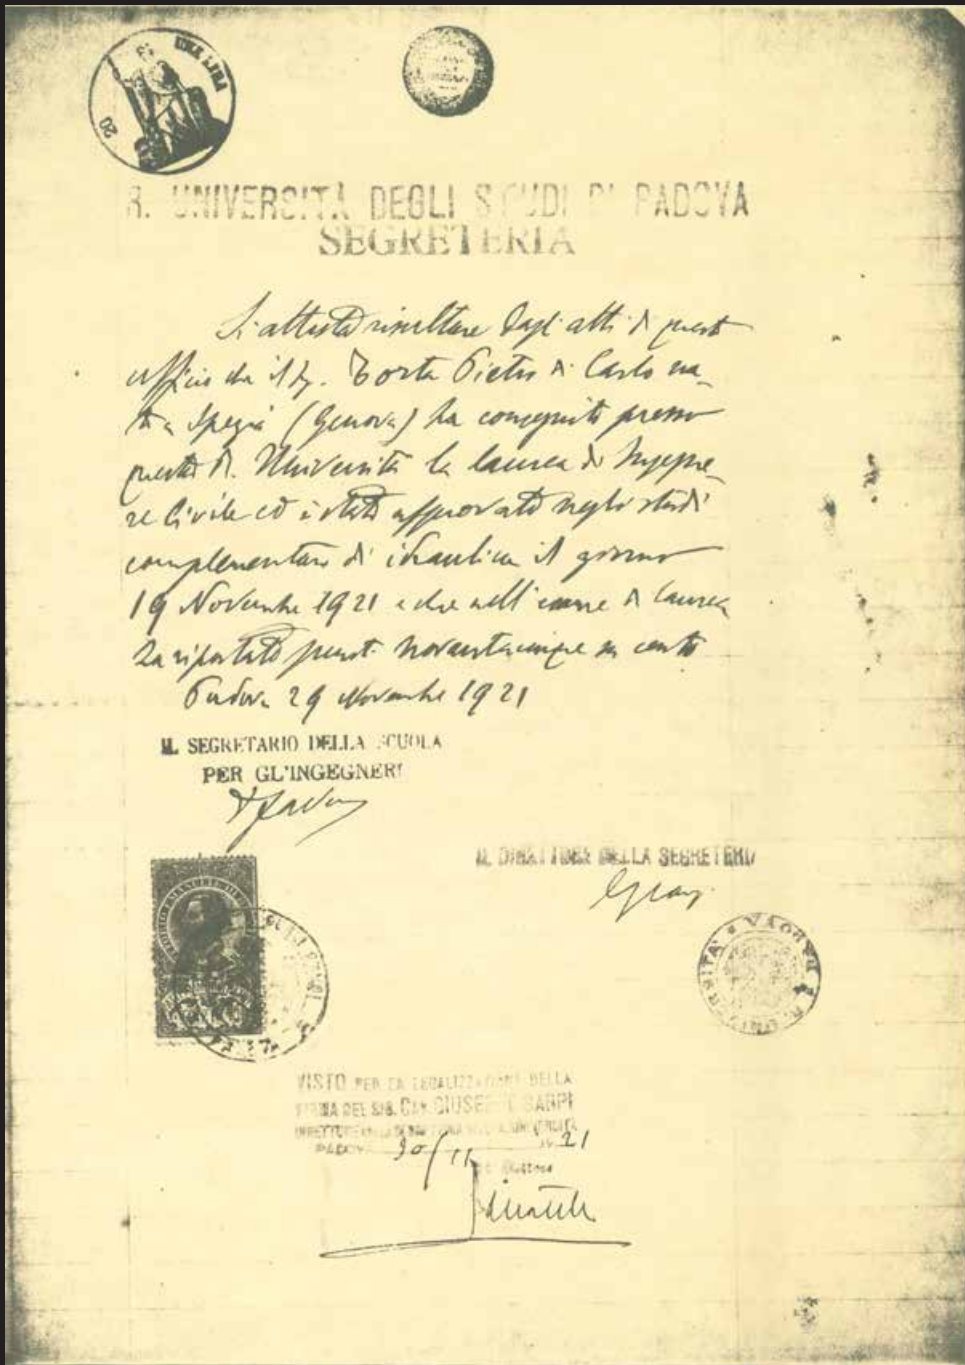 UNA LIRA
20
R. UNIVERSITÀ DEGLI STUDI DI PADOVA
SEGRETERIA
Si attesta risultare dagli atti di questo
ufficio che il Sig. Torta Pietro di Carlo na-
to a Spezia (Genova) ha conseguito presso
questa R. Università la laurea di Ingegne-
re Civile ed è stato approvato negli studi
complementari di idraulica il giorno
19 Novembre 1921 e che nell'esame di laurea
ha riportato punti novantacinque su cento
Padova 29 Novembre 1921
IL SEGRETARIO DELLA SCUOLA
PER GL'INGEGNERI
IL DIRETTORE DELLA SEGRETERIA
R. UNIVERSITÀ PADOVA
VISTO PER LA LEGALIZZAZIONE DELLA
FIRMA DEL SIG. CAV. GIUSEPPE SARPI
DIRETTORE DELLA SEGRETERIA DELLA R. UNIVERSITÀ
PADOVA 30/11 1921
Il Rettore